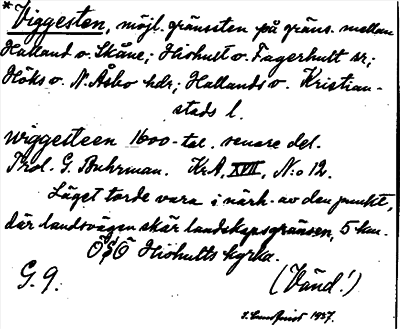 *Viggesten, möjl. gränssten på gräns. mellan
Halland o. Skåne; Hishult o. Fagerhult sr;
Höks o. N. Åsbo hdr; Hallands o. Kristian-
stads l.
wiggesteen 1600-tal. senare del.
Prol. G. Buhrman. KrA, XVII, N:o 12.
Läget torde vara i närh. av den punkt,
där landsvägen skär landskapsgränsen, 5 km.
ÖSÖ Hishults kyrka.
G. 9. (Vänd!)
S. Lundquist 1927.